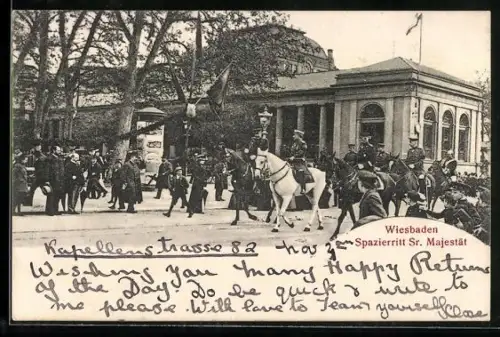 Wiesbaden
Spazierritt Sr. Majestät
Kapellenstrasse 82 Nov 2
Wishing You Many Happy Return
of the Day. Do be quick & write to
me please. Will love to